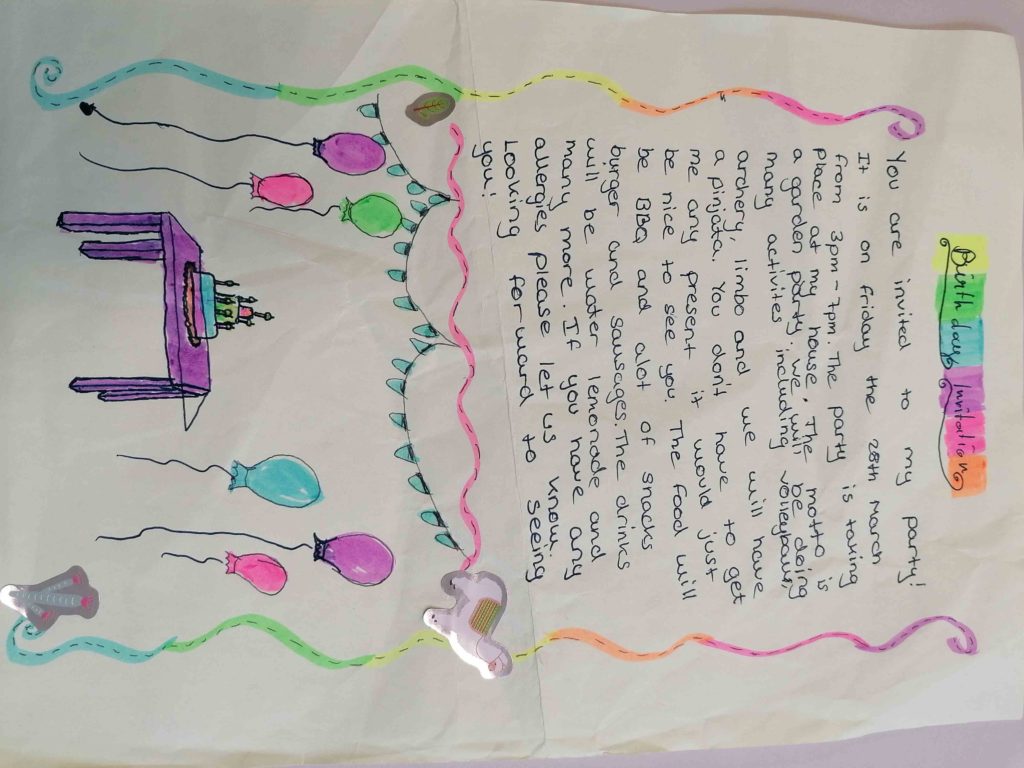 Birthday Invitation
You are invited to my party!
It is on friday the 28th March
from 3pm - 7pm. The party is taking
place at my house. The motto is
a garden party. We will be doing
many activities including volleyball,
archery, limbo and we will have
a pinjata. You don't have to get
me any present it would just
be nice to see you. The food will
be BBQ and alot of snacks
burger and sausages. The drinks
will be water lemonade and
many more. If you have any
allergies please let us know.
Looking forward to seeing
you!